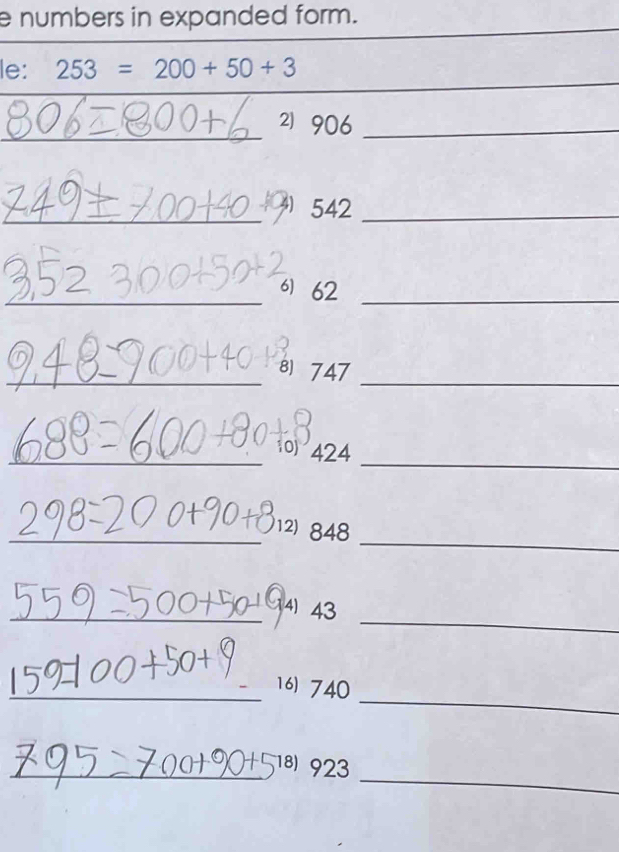 e numbers in expanded form.
le: 253 = 200 + 50 + 3
806=800+6 2) 906
749=700+40+9 4) 542
352 300+50+2 6) 62
948=900+40+8 8) 747
688=600+80+8 10) 424
298=200+90+8 12) 848
559=500+50+9 14) 43
159=100+50+9 16) 740
795=700+90+5 18) 923